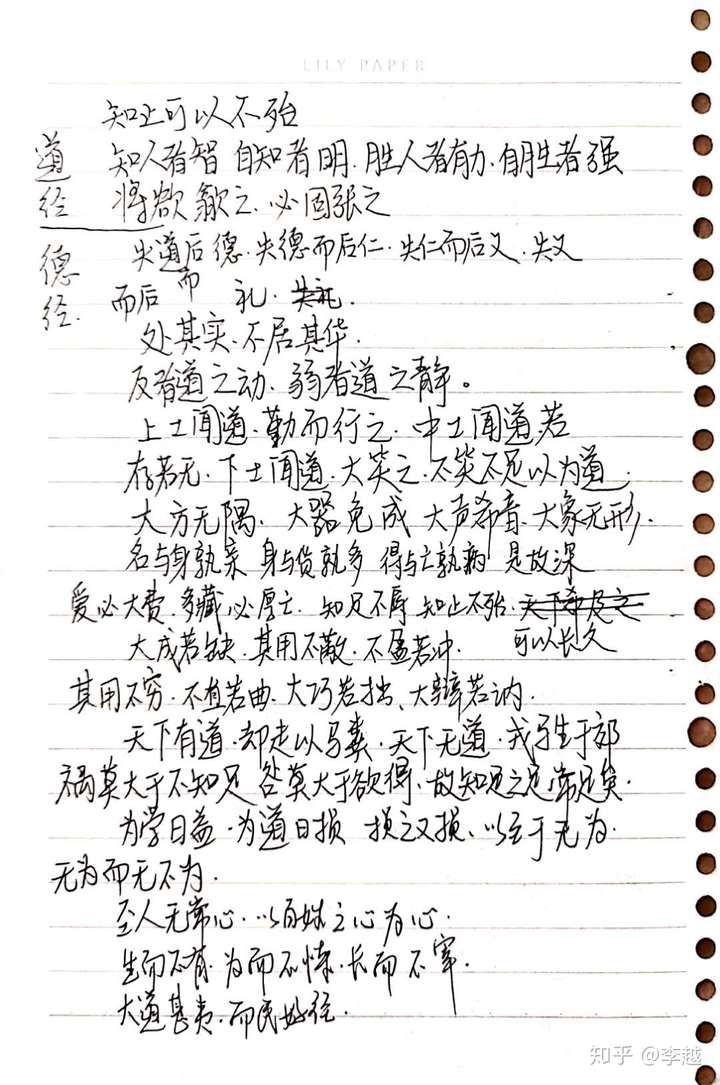 LILY PAPER
知止可以不殆
道经
知人者智 自知者明.胜人者有力.自胜者强
将欲歙之.必固张之
德经.
失道后德.失德而后仁.失仁而后义.失义
而后 而 礼.失礼.
处其实.不居其华.
反者道之动.弱者道之静。
上士闻道.勤而行之.中士闻道若
存若无.下士闻道.大笑之.不笑不足以为道.
大方无隅.大器免成 大声希音.大象无形.
名与身孰亲 身与货孰多 得与亡孰病 是故深
爱必大费.多藏必厚亡.知足不辱 知止不殆.天下希及之
大成若缺.其用不敝.不盈若冲. 可以长久
其用不穷.不直若曲.大巧若拙、大辩若讷.
天下有道.却走以马粪.天下无道.戎马生于郊
祸莫大于不知足 咎莫大于欲得.故知足之足常足矣.
为学日益.为道日损 损之又损、以至于无为.
无为而无不为.
圣人无常心.以百姓之心为心.
生而不有.为而不恃.长而不宰.
大道甚夷.而民好径.
知乎 @李越